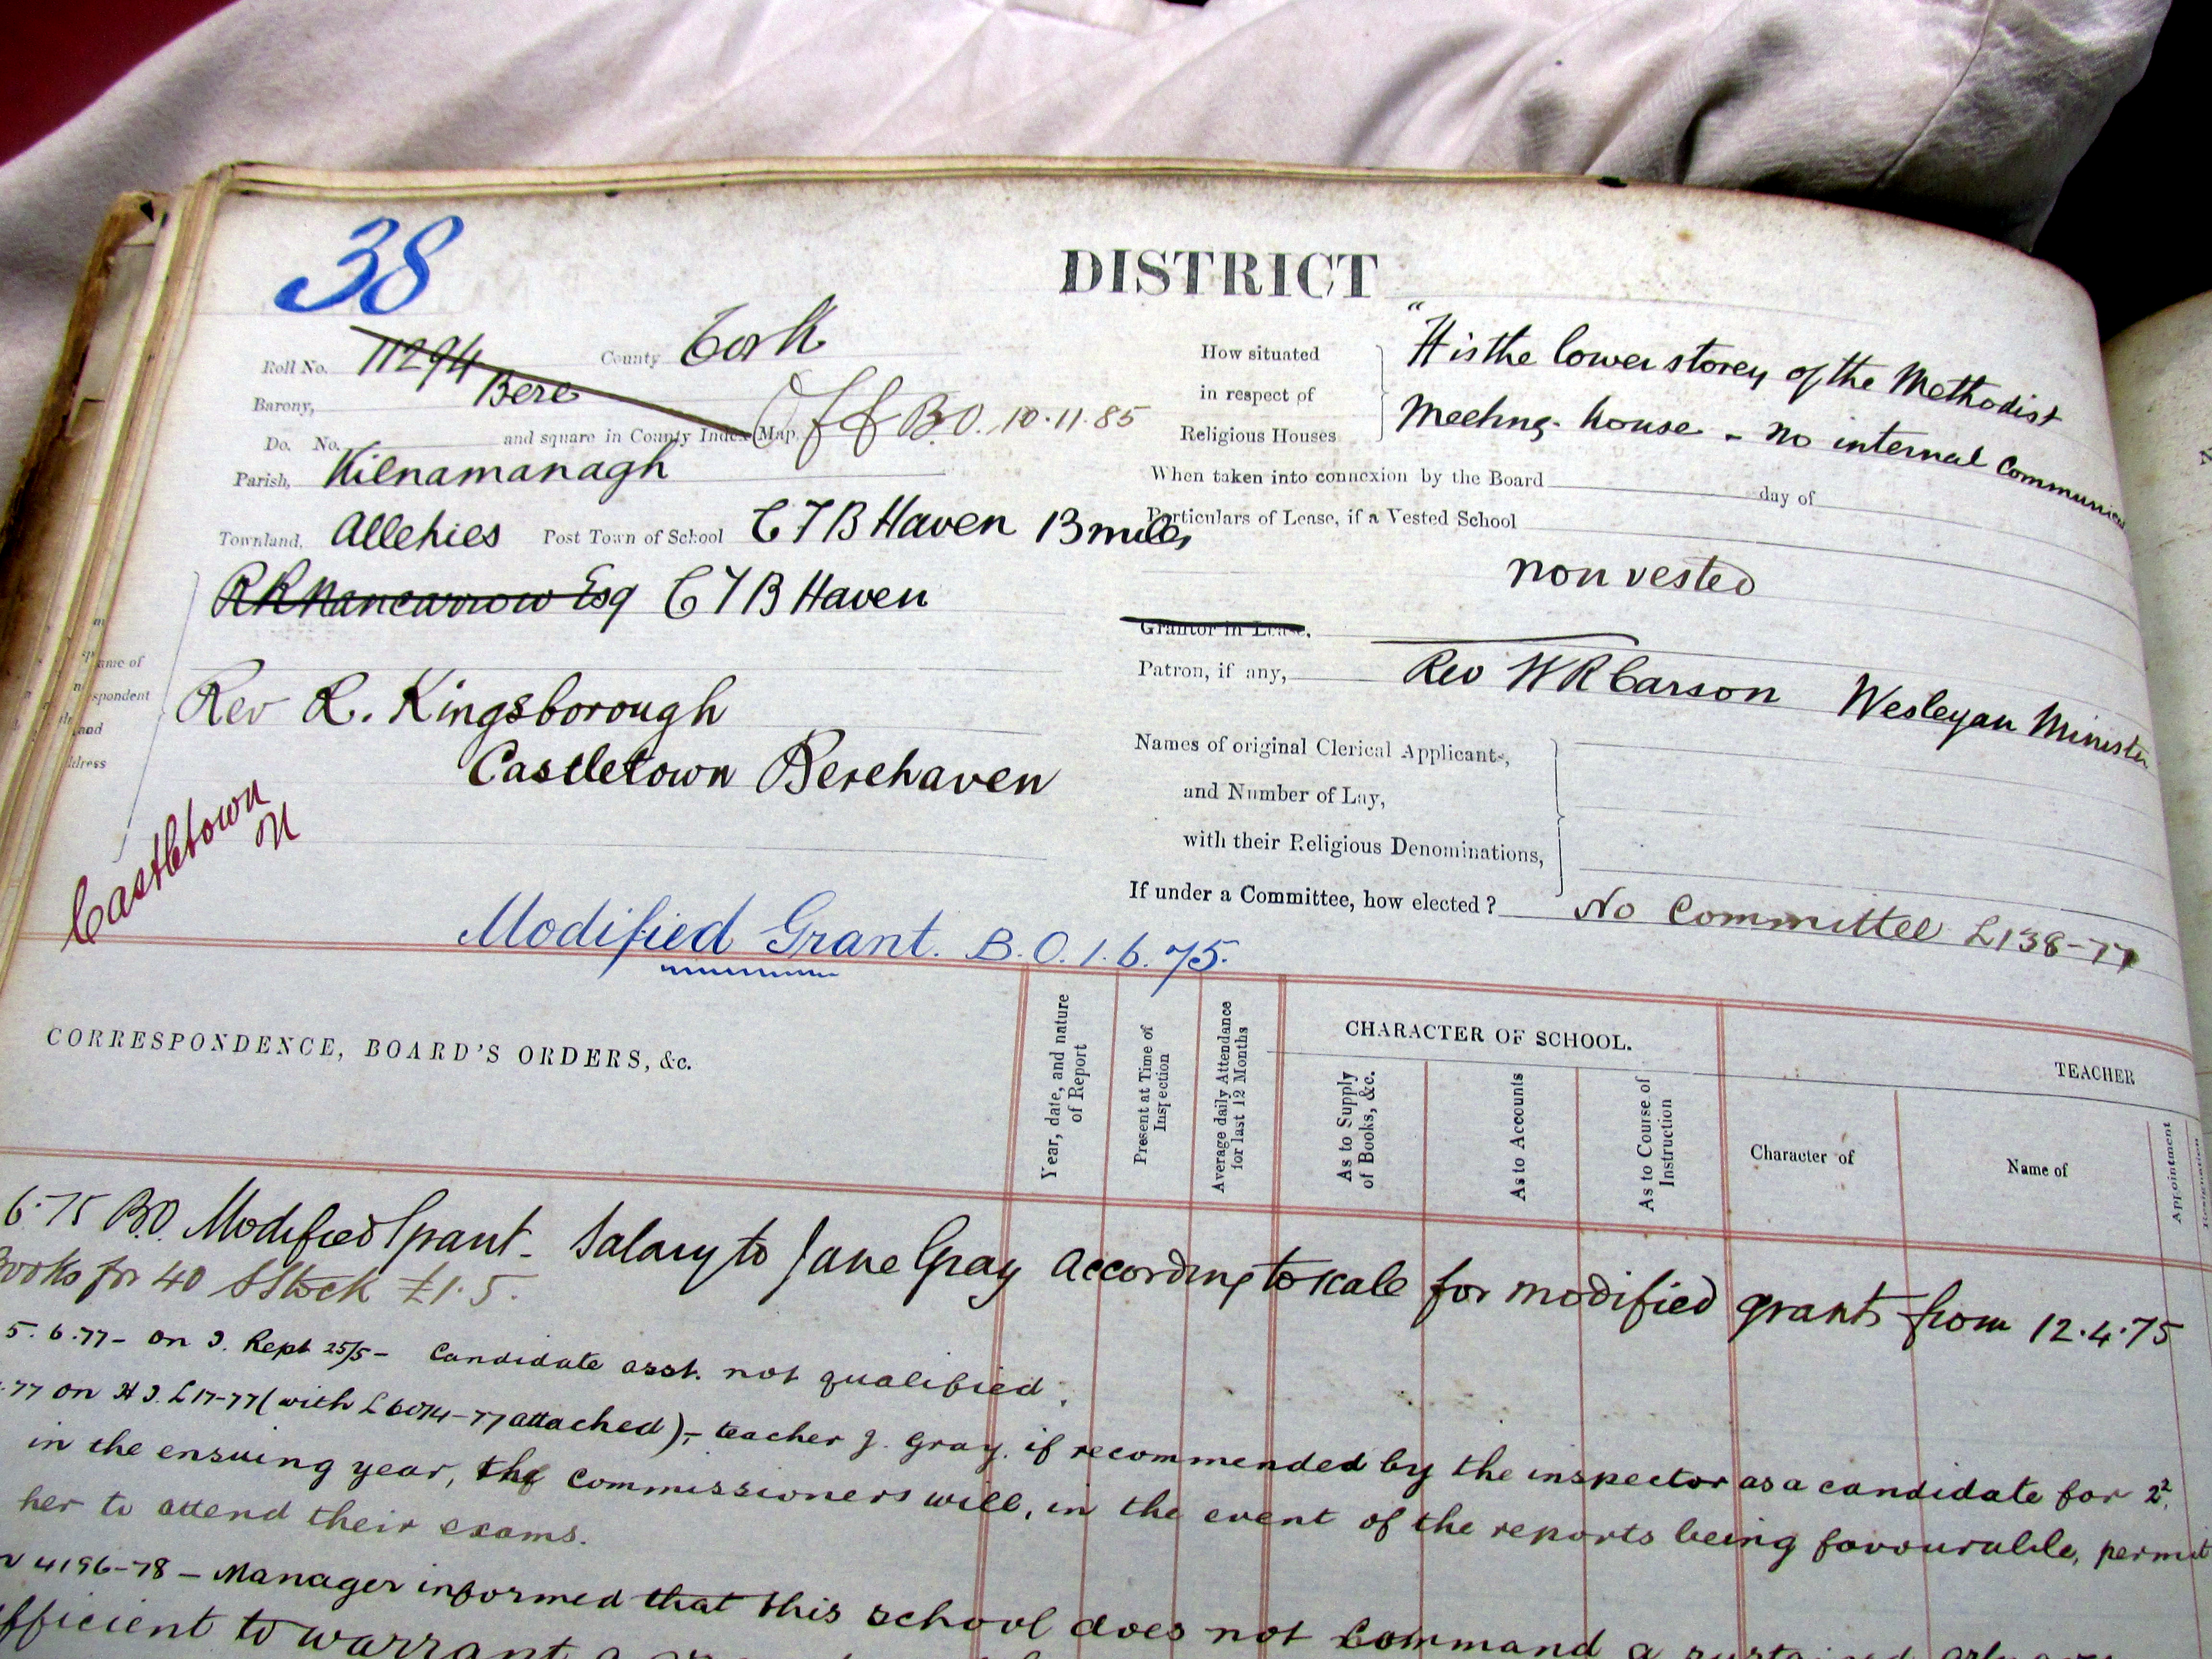 38
DISTRICT
Roll No. 11294 County Cork
Barony, Bere
Off B.O. 10.11.85
Do. No. and square in County Index Map,
Parish, Kilnamanagh
Townland, Allehies Post Town of School C T B Haven 13 miles
R R Nancarrow Esq C T B Haven
Rev R. Kingsborough
Castletown Berehaven
ame of
spondent
and
ddress
Castletown
N
How situated
in respect of
Religious Houses
"It is the lower storey of the Methodist
Meeting-house - no internal Communica
When taken into connexion by the Board day of
Particulars of Lease, if a Vested School
non vested
Grantor in Lease,
Patron, if any, Rev W R Carson Wesleyan Minister
Names of original Clerical Applicants,
and Number of Lay,
with their Religious Denominations,
If under a Committee, how elected? No Committee L138-77
Modified Grant. B.O. 1.6.75.
CORRESPONDENCE, BOARD'S ORDERS, &c.
Year, date, and nature of Report
Present at Time of Inspection
Average daily Attendance for last 12 Months
CHARACTER OF SCHOOL.
As to Supply of Books, &c.
As to Accounts
As to Course of Instruction
TEACHER
Character of
Name of
Appointment
6.75 B.O. Modified Grant - Salary to Jane Gray according to scale for modified grants from 12.4.75
Books for 40 Stock £1.5.
5.6.77 - on I. Rept 25/5 - Candidate asst. not qualified.
.77 on H I. L17-77 (with L6074-77 attached) - teacher J. Gray, if recommended by the inspector as a candidate for 2²,
in the ensuing year, the commissioners will, in the event of the reports being favourable, permit
her to attend their exams.
4196-78 - Manager informed that this school does not command a sustained
fficient to warrant a